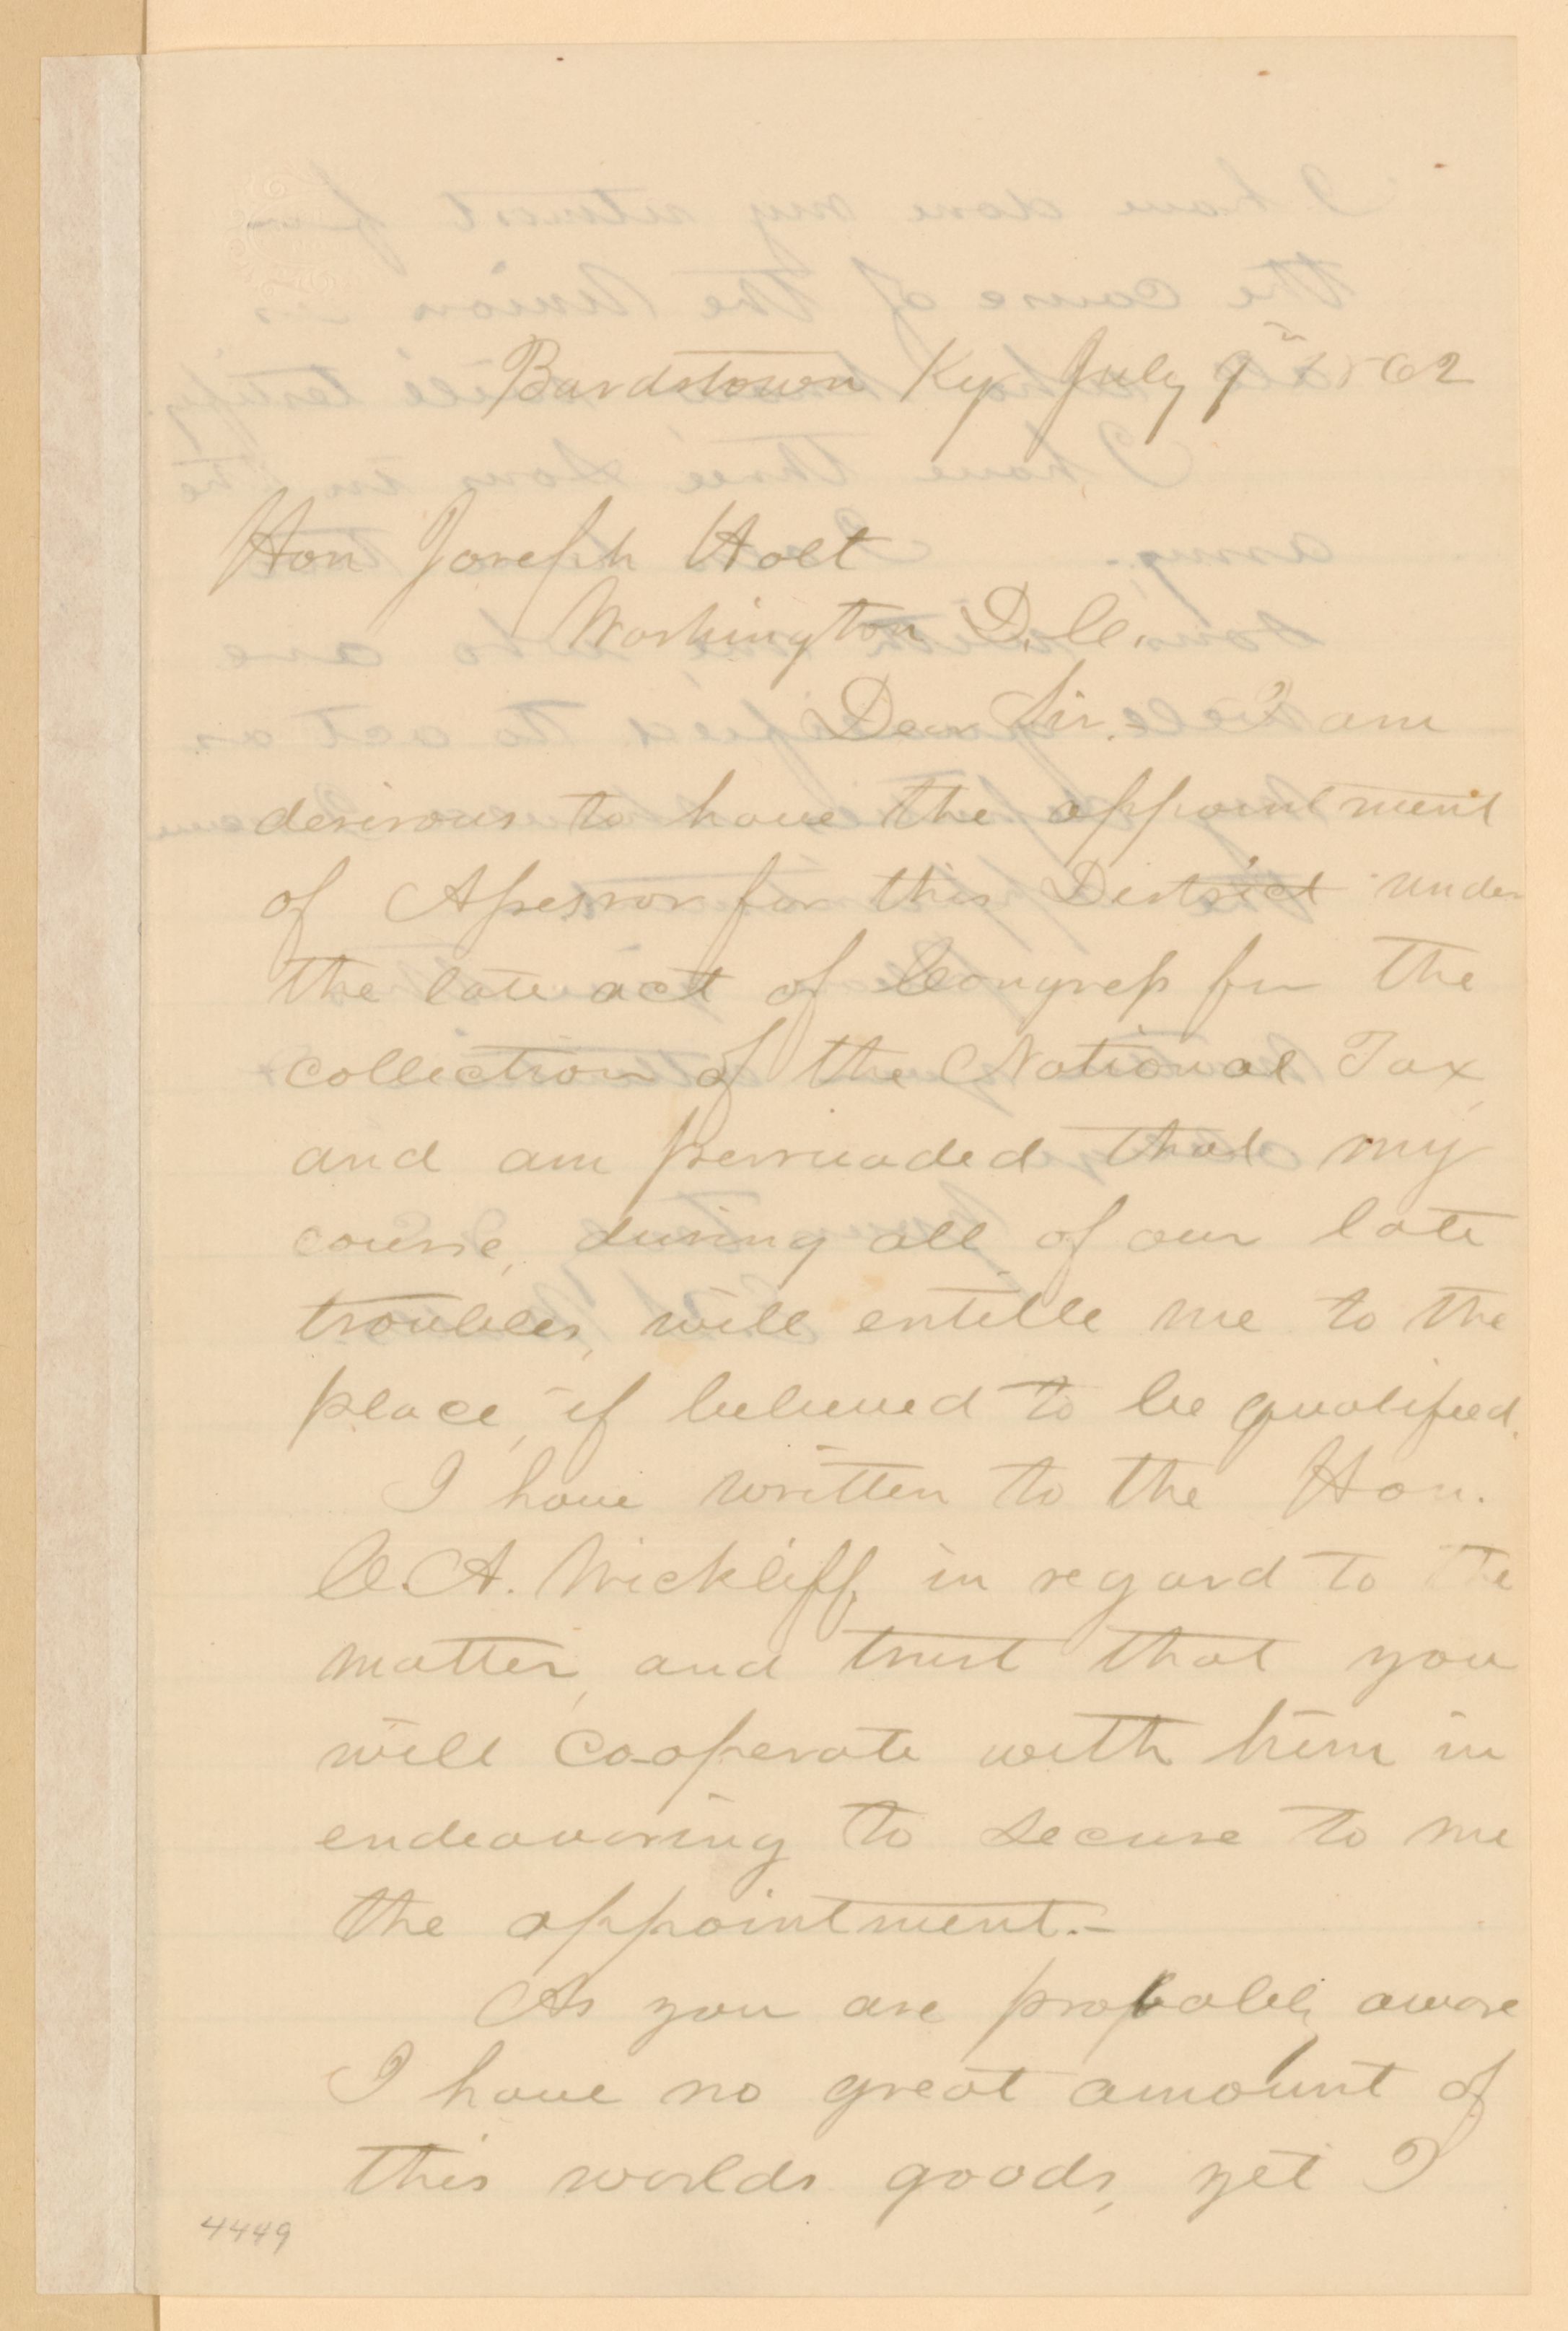 Bardstown Ky July 9th 1862
Hon Joseph Holt
Washington D.C.
Dear Sir. I am
desirous to have the appointment
of Assessor for this District under
the late act of Congress for the
collection of the National Tax,
and am persuaded that my
course, during all of our late
troubles, will entille me to the
place, if believed to be qualified.
I have written to the Hon.
C.A. Wickliff, in regard to the
matter, and trust that you
will co-operate with him in
endeavoring to secure to me
the appointment.-
As you are probably aware
I have no great amount of
this worlds goods, yet I
4449